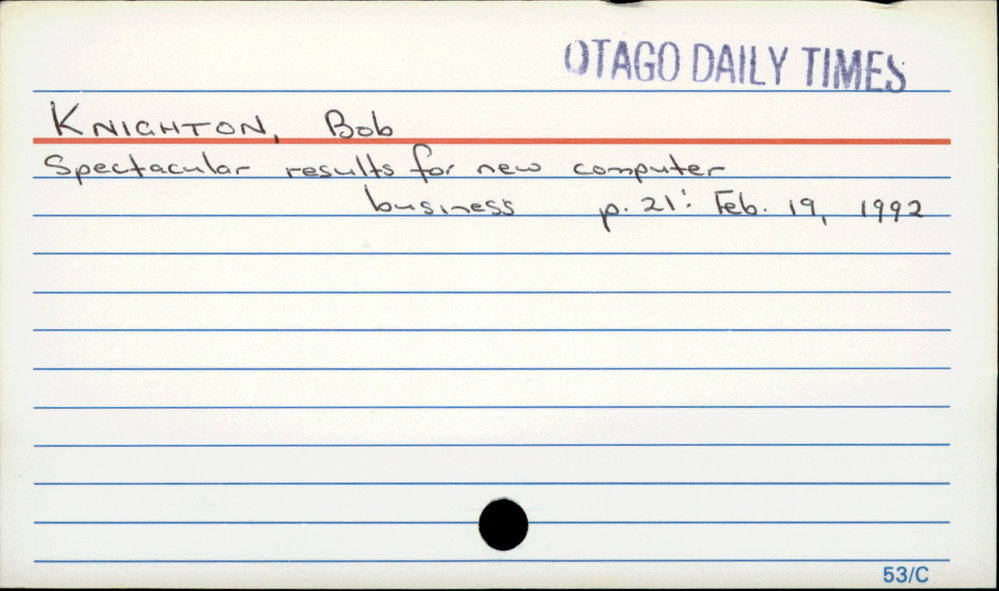 OTAGO DAILY TIMES
KNIGHTON, Bob
Spectacular results for new computer
business p. 21: Feb. 19, 1992
53/C